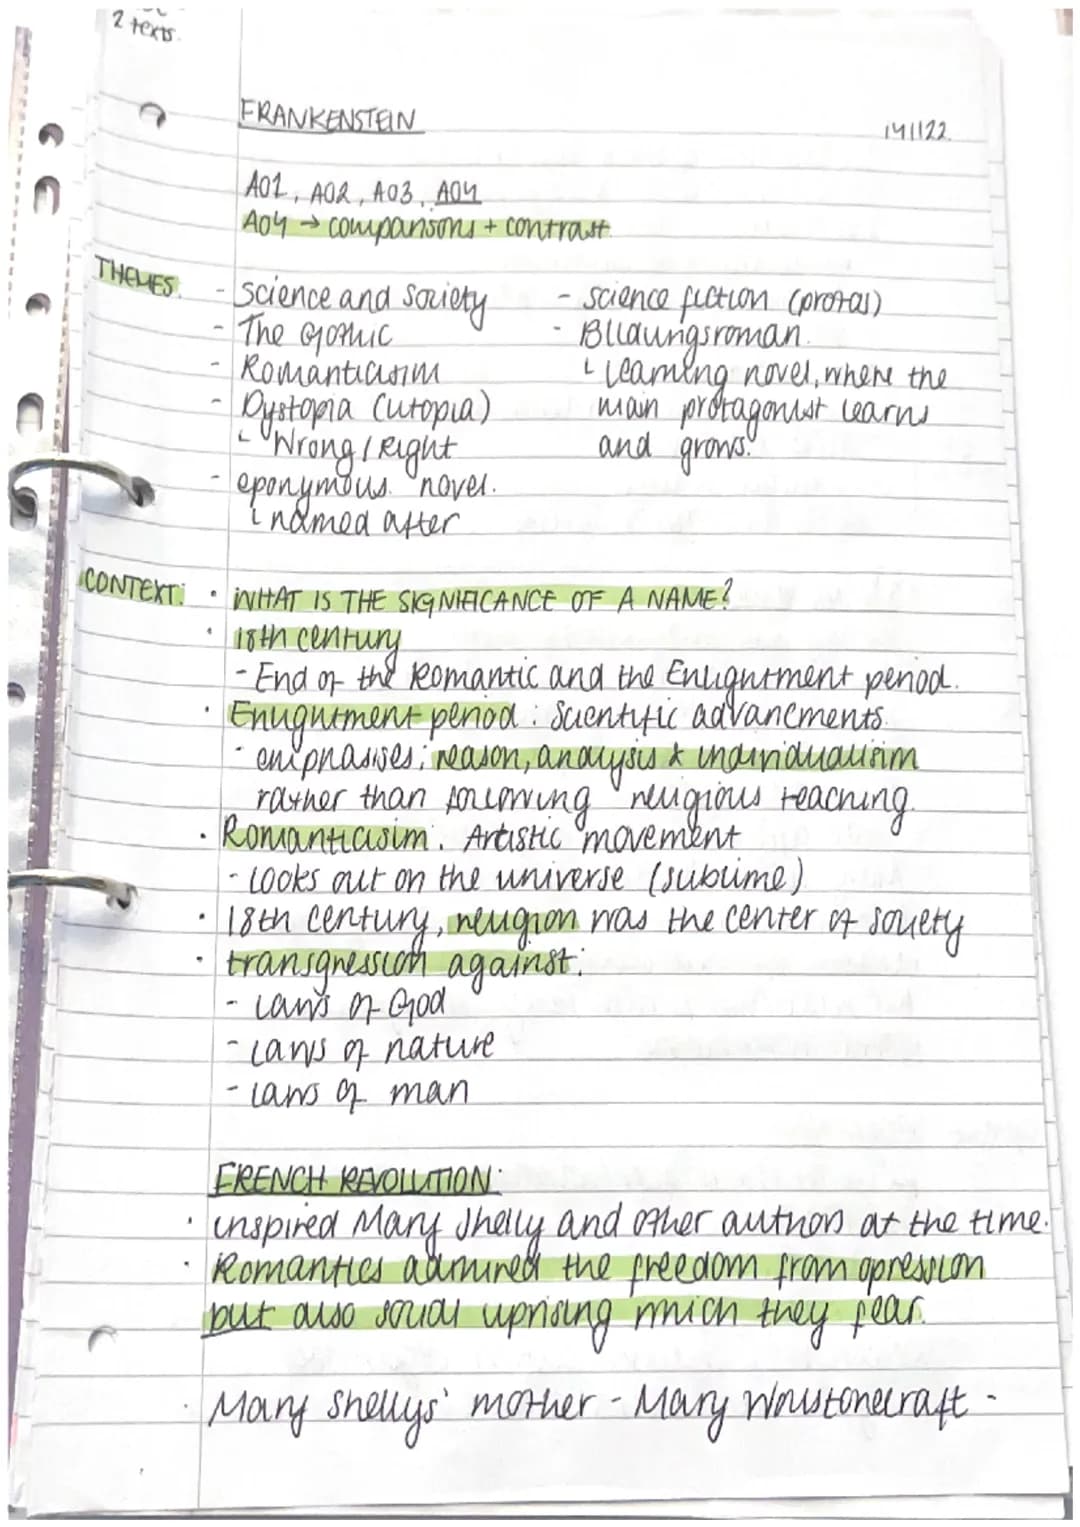 2 texts.
FRANKENSTEIN
14/1/22
A01, A02, A03, A04
A04 → comparisons + contrast
THEMES.
- Science and society
- The Gothic
- Romanticisim
- Dystopia (utopia)
└ Wrong / Right
- eponymous novel.
└ named after
- science fiction (protas)
- Bildungsroman.
└ learning novel, where the
main protagonist learns
and grows.
CONTEXT:
• WHAT IS THE SIGNIFICANCE OF A NAME?
• 18th century
- End of the Romantic and the Enlightment period.
• Enlightment period: Scientific advancments.
- emphasises: reason, analysis & individualisim
rather than following religious teaching.
• Romanticisim: Artistic movement
- looks out on the universe (sublime)
• 18th century, religion was the center of society
• transgression against:
- laws of God
- laws of nature
- laws of man
FRENCH REVOLUTION:
• inspired Mary Shelly and other authors at the time.
• Romantics admired the freedom from opression
but also social uprising which they fear.
• Mary Shellys' mother - Mary Wollstonecraft -